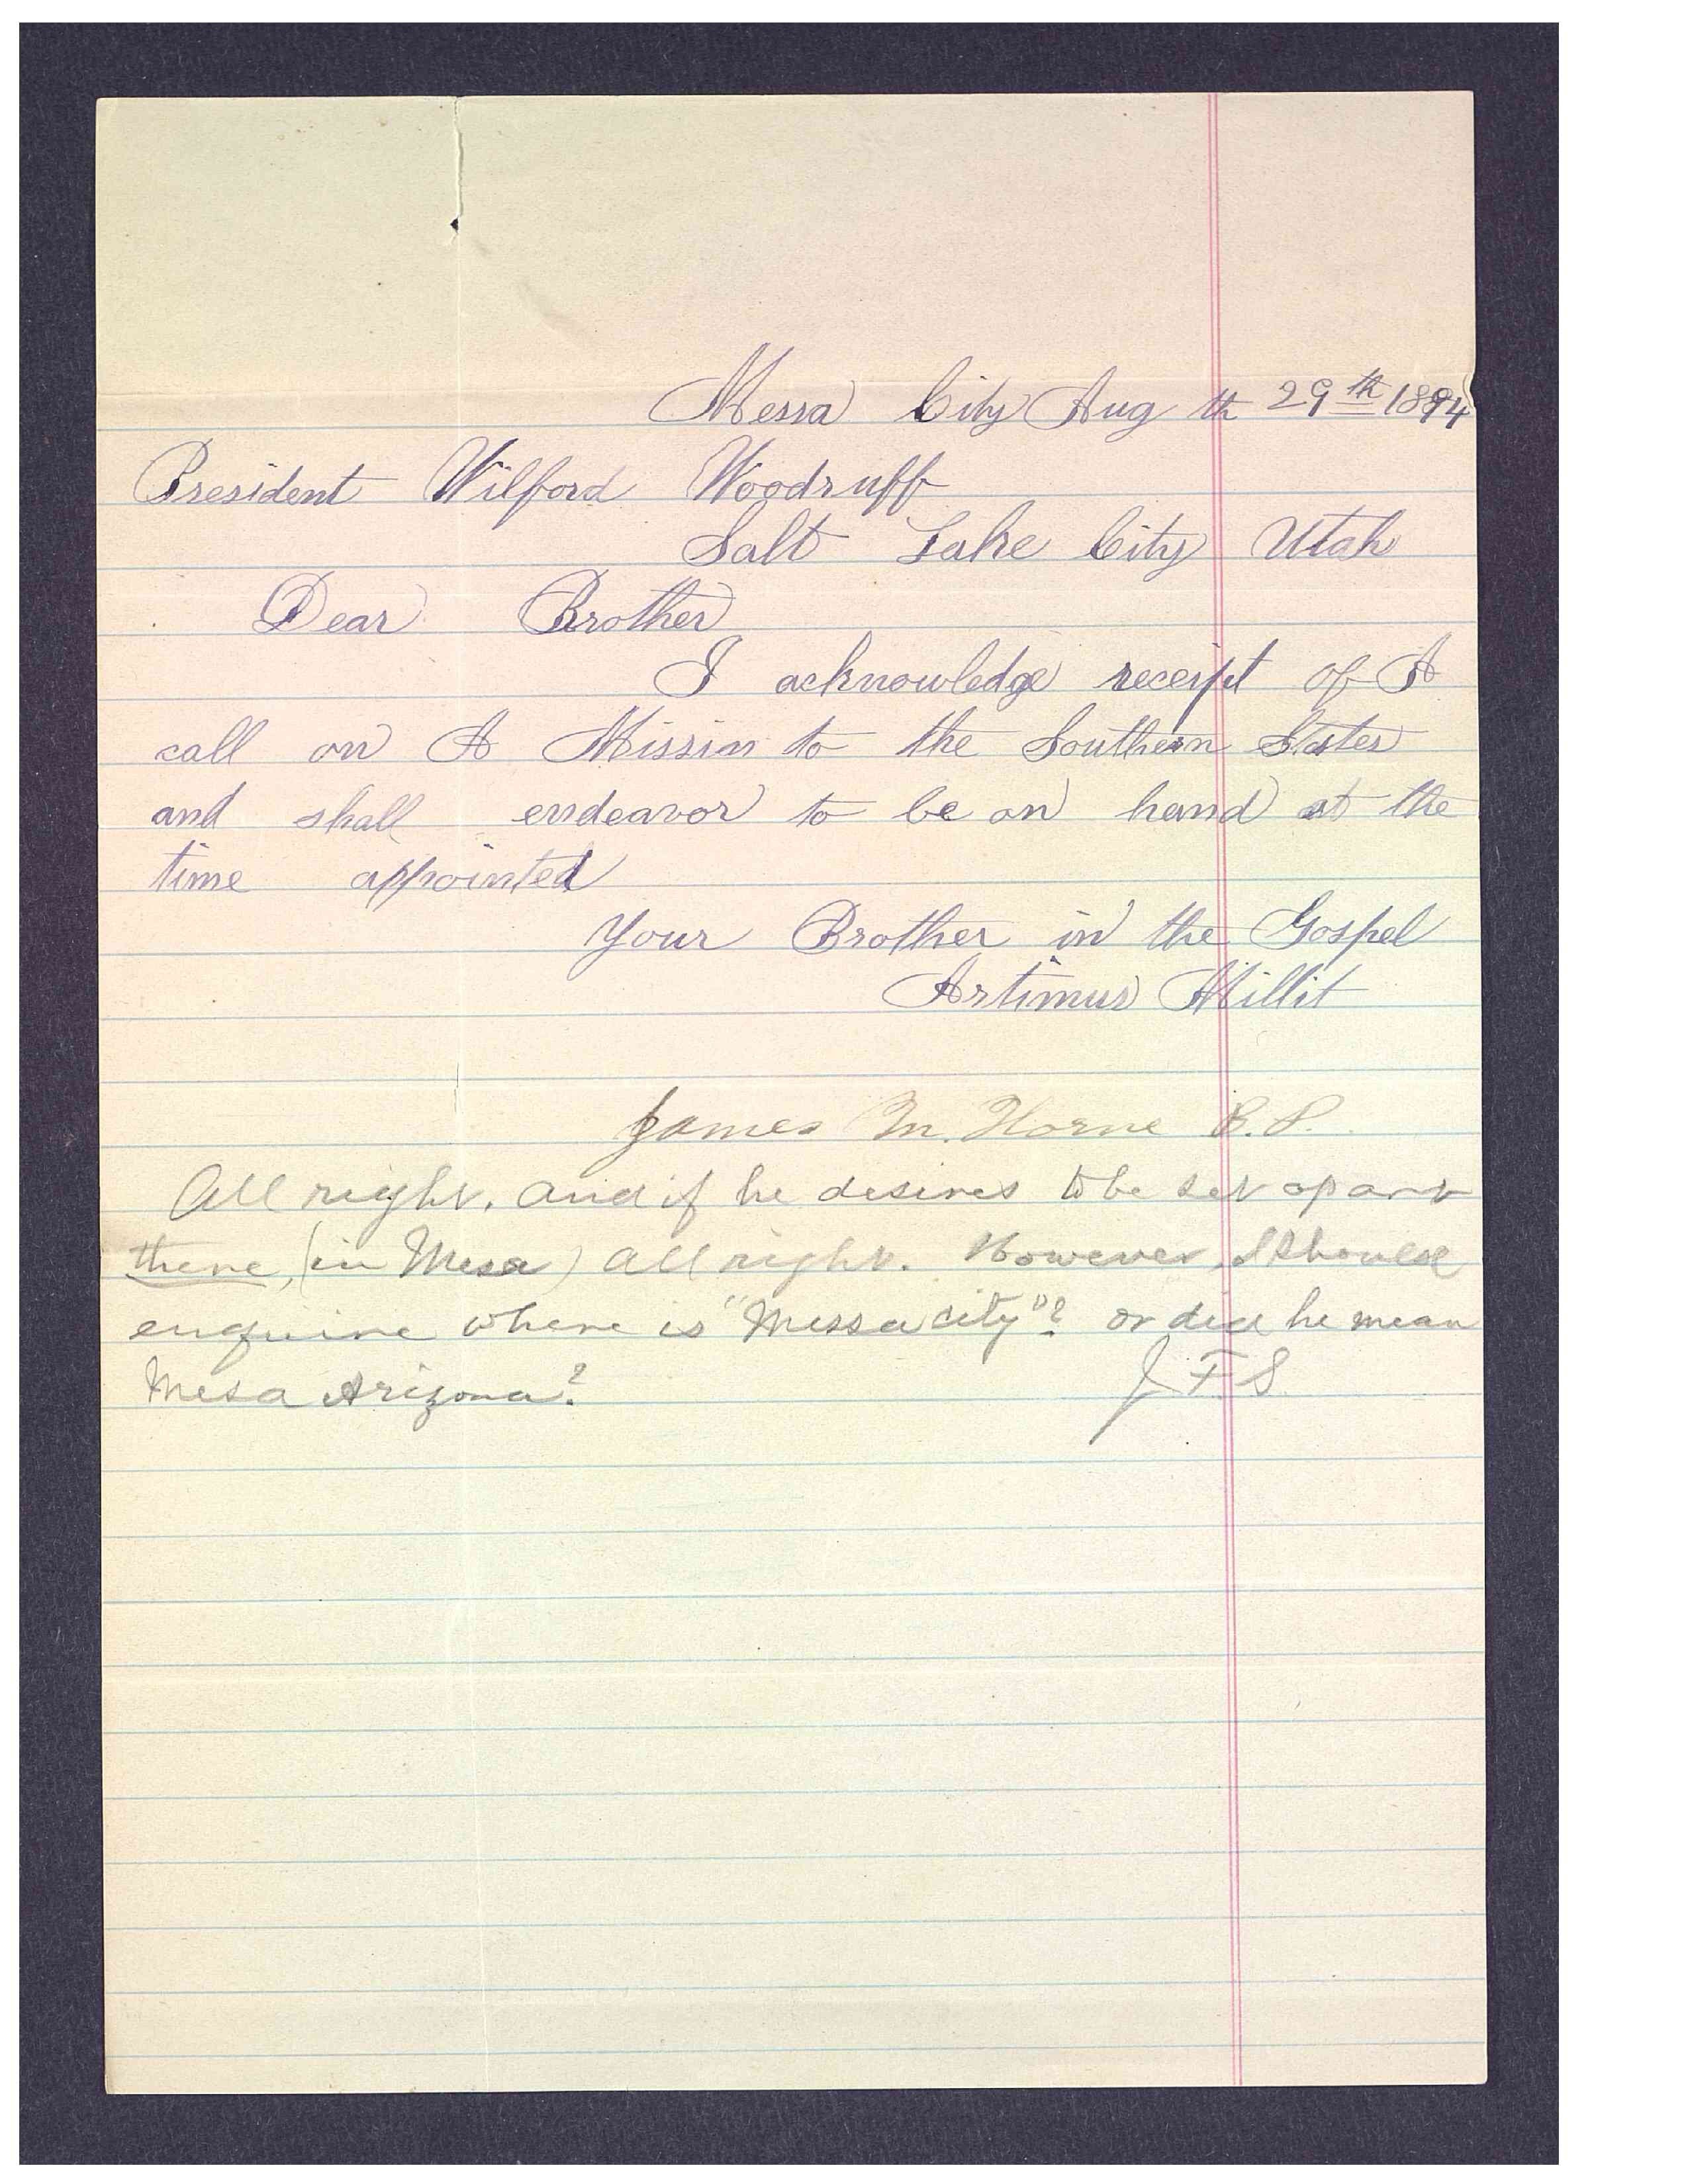 Messa City Aug th 29th 1894
President Wilford Woodruff
Salt Lake City Utah
Dear Brother
I acknowledge receipt of A
call on A Missin to the Southern States
and shall endeavor to be on hand at the
time appointed
Your Brother in the Gospel
Artimus Millit
James M. Horne B.P.
All right, and if he desires to be set apart
there, (in Mesa) all right. However, I should
enquire where is "Messa city"? or did he mean
Mesa Arizona?
J. F. S.